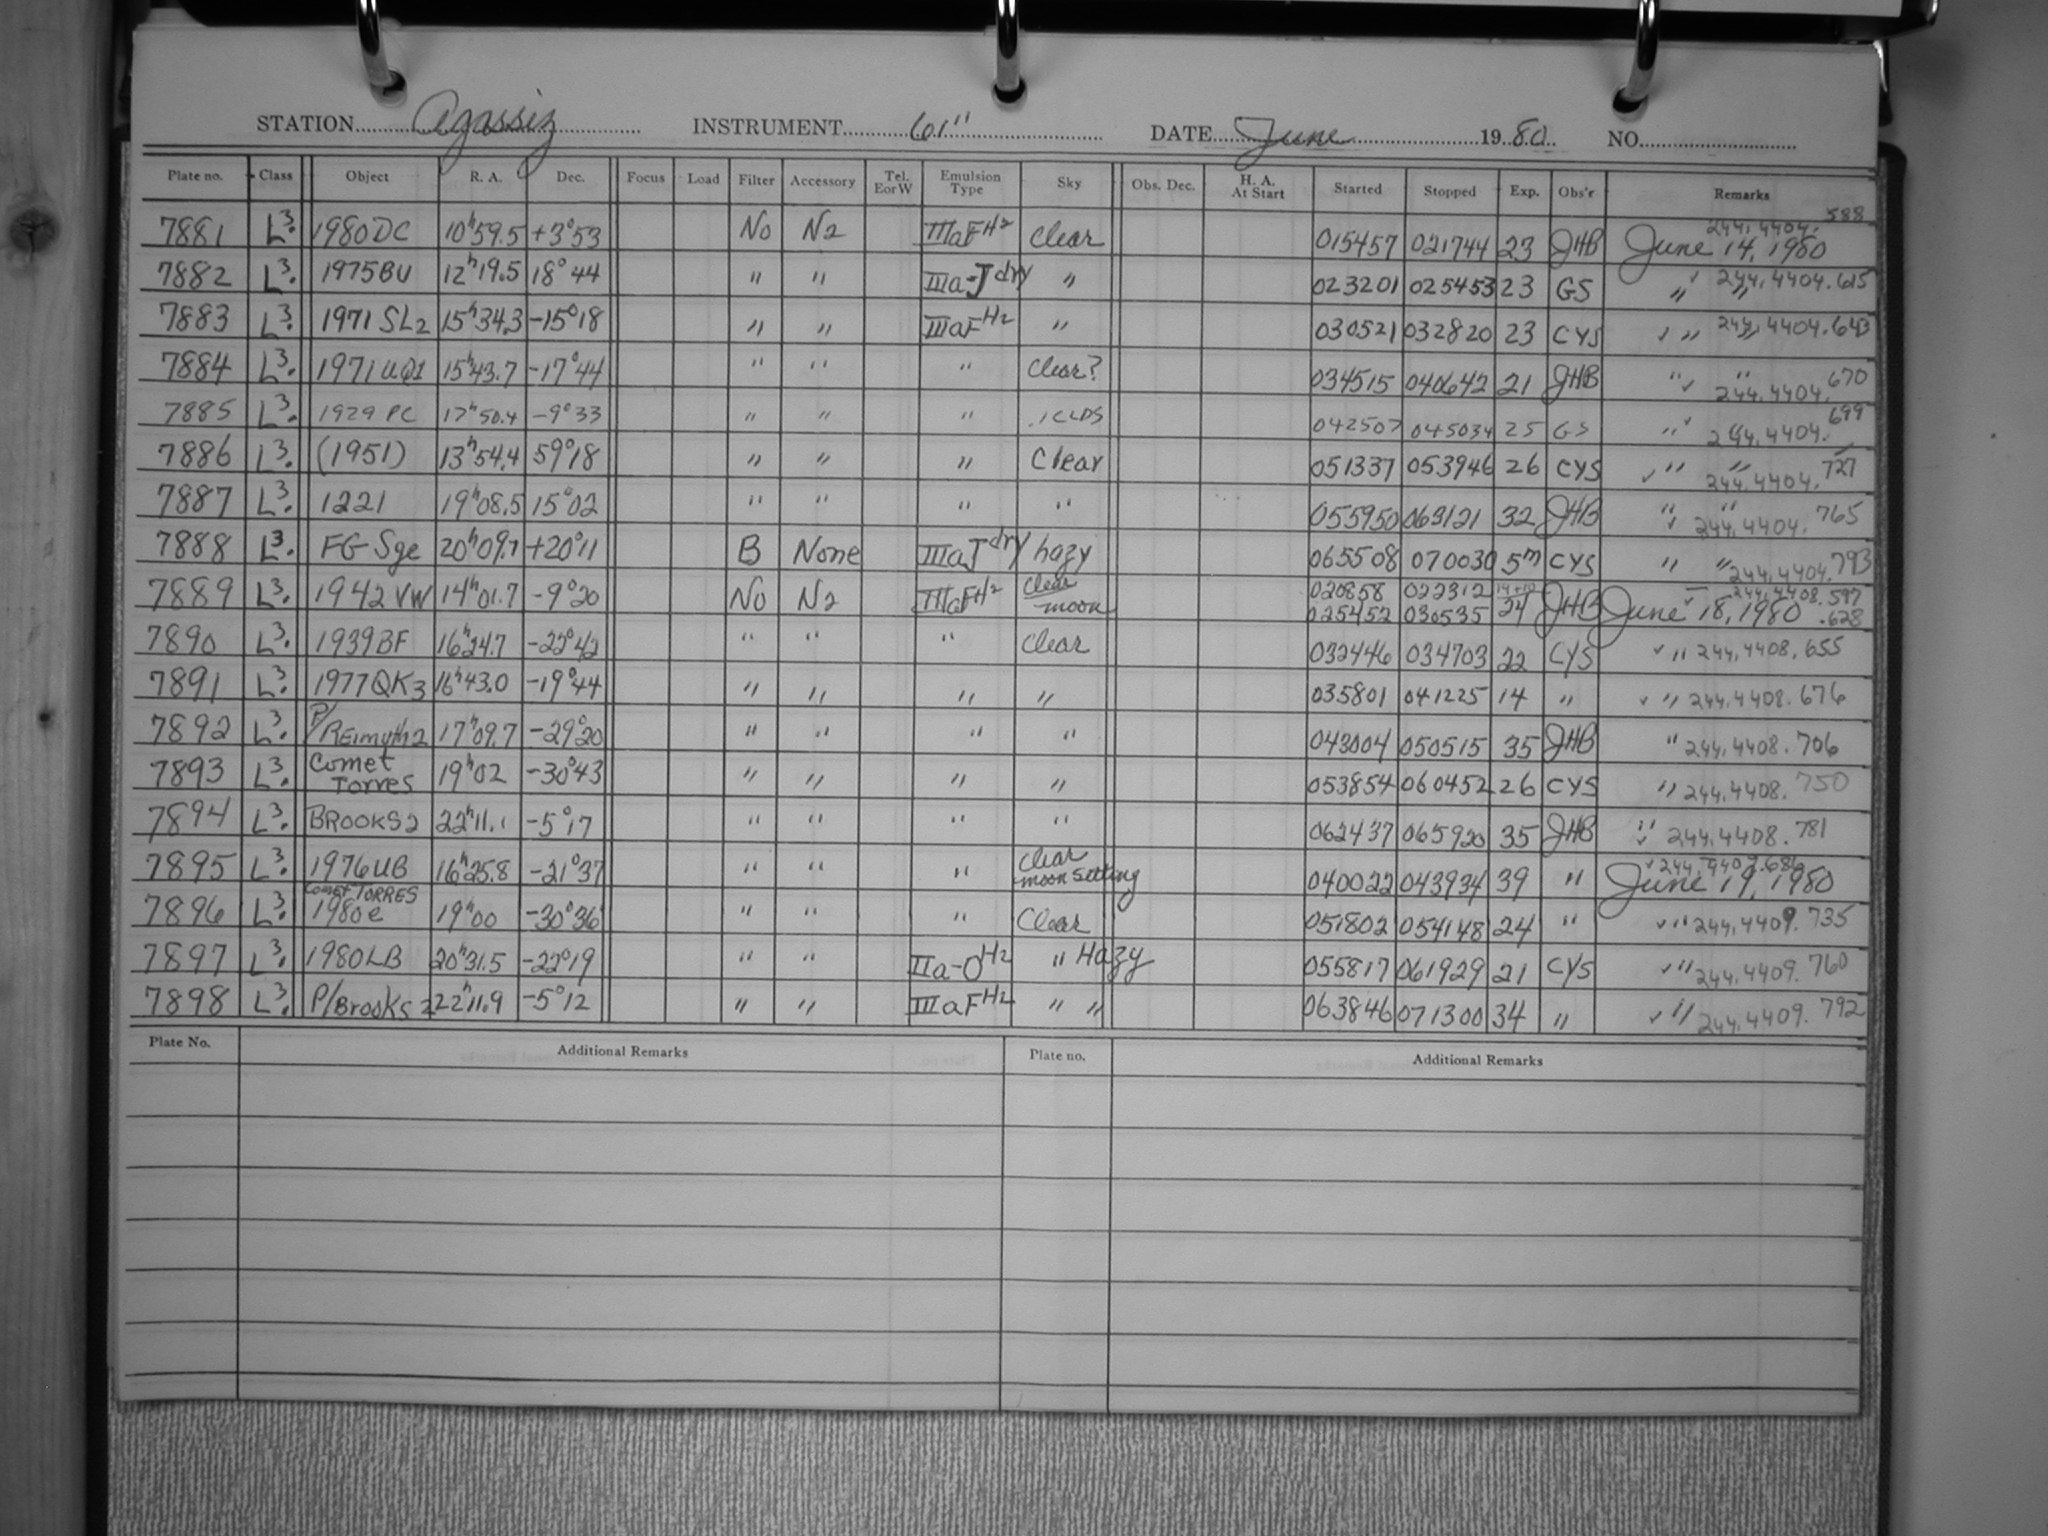 STATION Agassiz INSTRUMENT 61" DATE June 1980 NO.
Plate no. Class Object R. A. Dec. Focus Load Filter Accessory Tel. E or W Emulsion Type Sky Obs. Dec. H. A. At Start Started Stopped Exp. Obs'r Remarks
7881 L3. 1980DC 10h59.5 +3°53 No N2 IIIaF H2 clear 015457 021744 23 JHB 244,4404.588 June 14, 1980
7882 L3. 1975BU 12h19.5 18°44 " " IIIa-J dry " 023201 025453 23 GS " " 244,4404.615
7883 L3. 1971 SL2 15h34.3 -15°18 " " IIIaF H2 " 030521 032820 23 CYS ✓ " " 244,4404.643
7884 L3. 1971UQ1 15h43.7 -17°44 " " " clear? 034515 040642 21 JHB " ✓ " 244,4404.670
7885 L3. 1929 PC 17h50.4 -9°33 " " " CLDS 042507 045034 25 GS " ✓ 244,4404.699
7886 L3. (1951) 13h54.4 59°18 " " " Clear 051337 053946 26 CYS ✓ " " 244,4404.727
7887 L3. 1221 19h08.5 15°02 " " " " 055950 063121 32 JHB " ✓ " 244,4404.765
7888 L3. FG Sge 20h09.7 +20°11 B None IIIaJ dry hazy 065508 070030 5m CYS " " 244,4404.793
7889 L3. 1942 VW 14h01.7 -9°20 No N2 IIIaF H2 clear moon 020858 022312 14+10 JHB ✓ 244,4408.597
025452 030535 24 June 18, 1980 .628
7890 L3. 1939BF 16h24.7 -22°42 " " " clear 032446 034703 22 CYS ✓ " 244,4408.655
7891 L3. 1977QK3 16h43.0 -19°44 " " " " 035801 041225 14 " ✓ " 244,4408.676
7892 L3. P/Reimuth2 17h09.7 -29°20 " " " " 043004 050515 35 JHB " 244,4408.706
7893 L3. Comet Torres 19h02 -30°43 " " " " 053854 060452 26 CYS " 244,4408.750
7894 L3. BROOKS2 22h11.1 -5°17 " " " " 062437 065920 35 JHB " ✓ 244,4408.781
7895 L3. 1976UB 16h25.8 -21°37 " " " clear moon setting 040022 043934 39 " ✓ 244,4409.686 June 19, 1980
7896 L3. Comet TORRES 1980e 19h00 -30°36 " " " Clear 051802 054148 24 " ✓ " 244,4409.735
7897 L3. 1980LB 20h31.5 -22°19 " " IIa-O H2 " Hazy 055817 061929 21 CYS ✓ " 244,4409.760
7898 L3. P/Brooks 2 22h11.9 -5°12 " " IIIaF H2 " " 063846 071300 34 " ✓ " 244,4409.792
Plate No. Additional Remarks Plate no. Additional Remarks